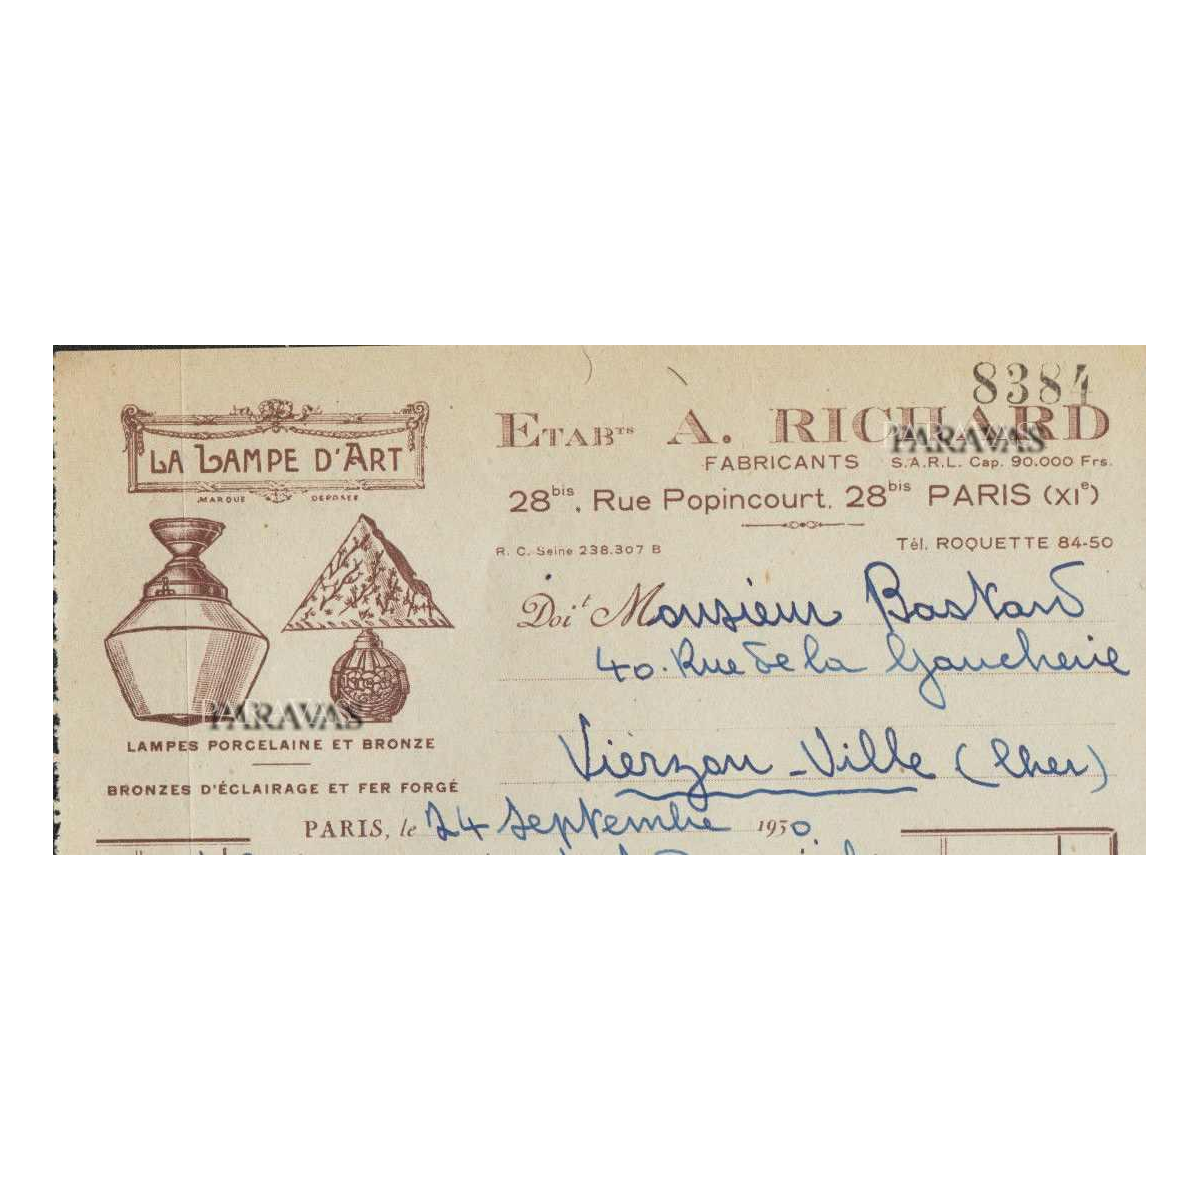 8384
LA LAMPE D'ART
MARQUE DÉPOSÉE
LAMPES PORCELAINE ET BRONZE
BRONZES D'ÉCLAIRAGE ET FER FORGÉ
ETABTS A. RICHARD
FABRICANTS S.A.R.L. Cap. 90.000 Frs.
28bis, Rue Popincourt, 28bis PARIS (XIe)
R. C. Seine 238.307 B
Tél. ROQUETTE 84-50
Doit Monsieur Bastard
40. Rue de la Gaucherie
Vierzon-Ville (Cher)
PARIS, le 24 septembre 1930
PARAVAS
PARAVAS